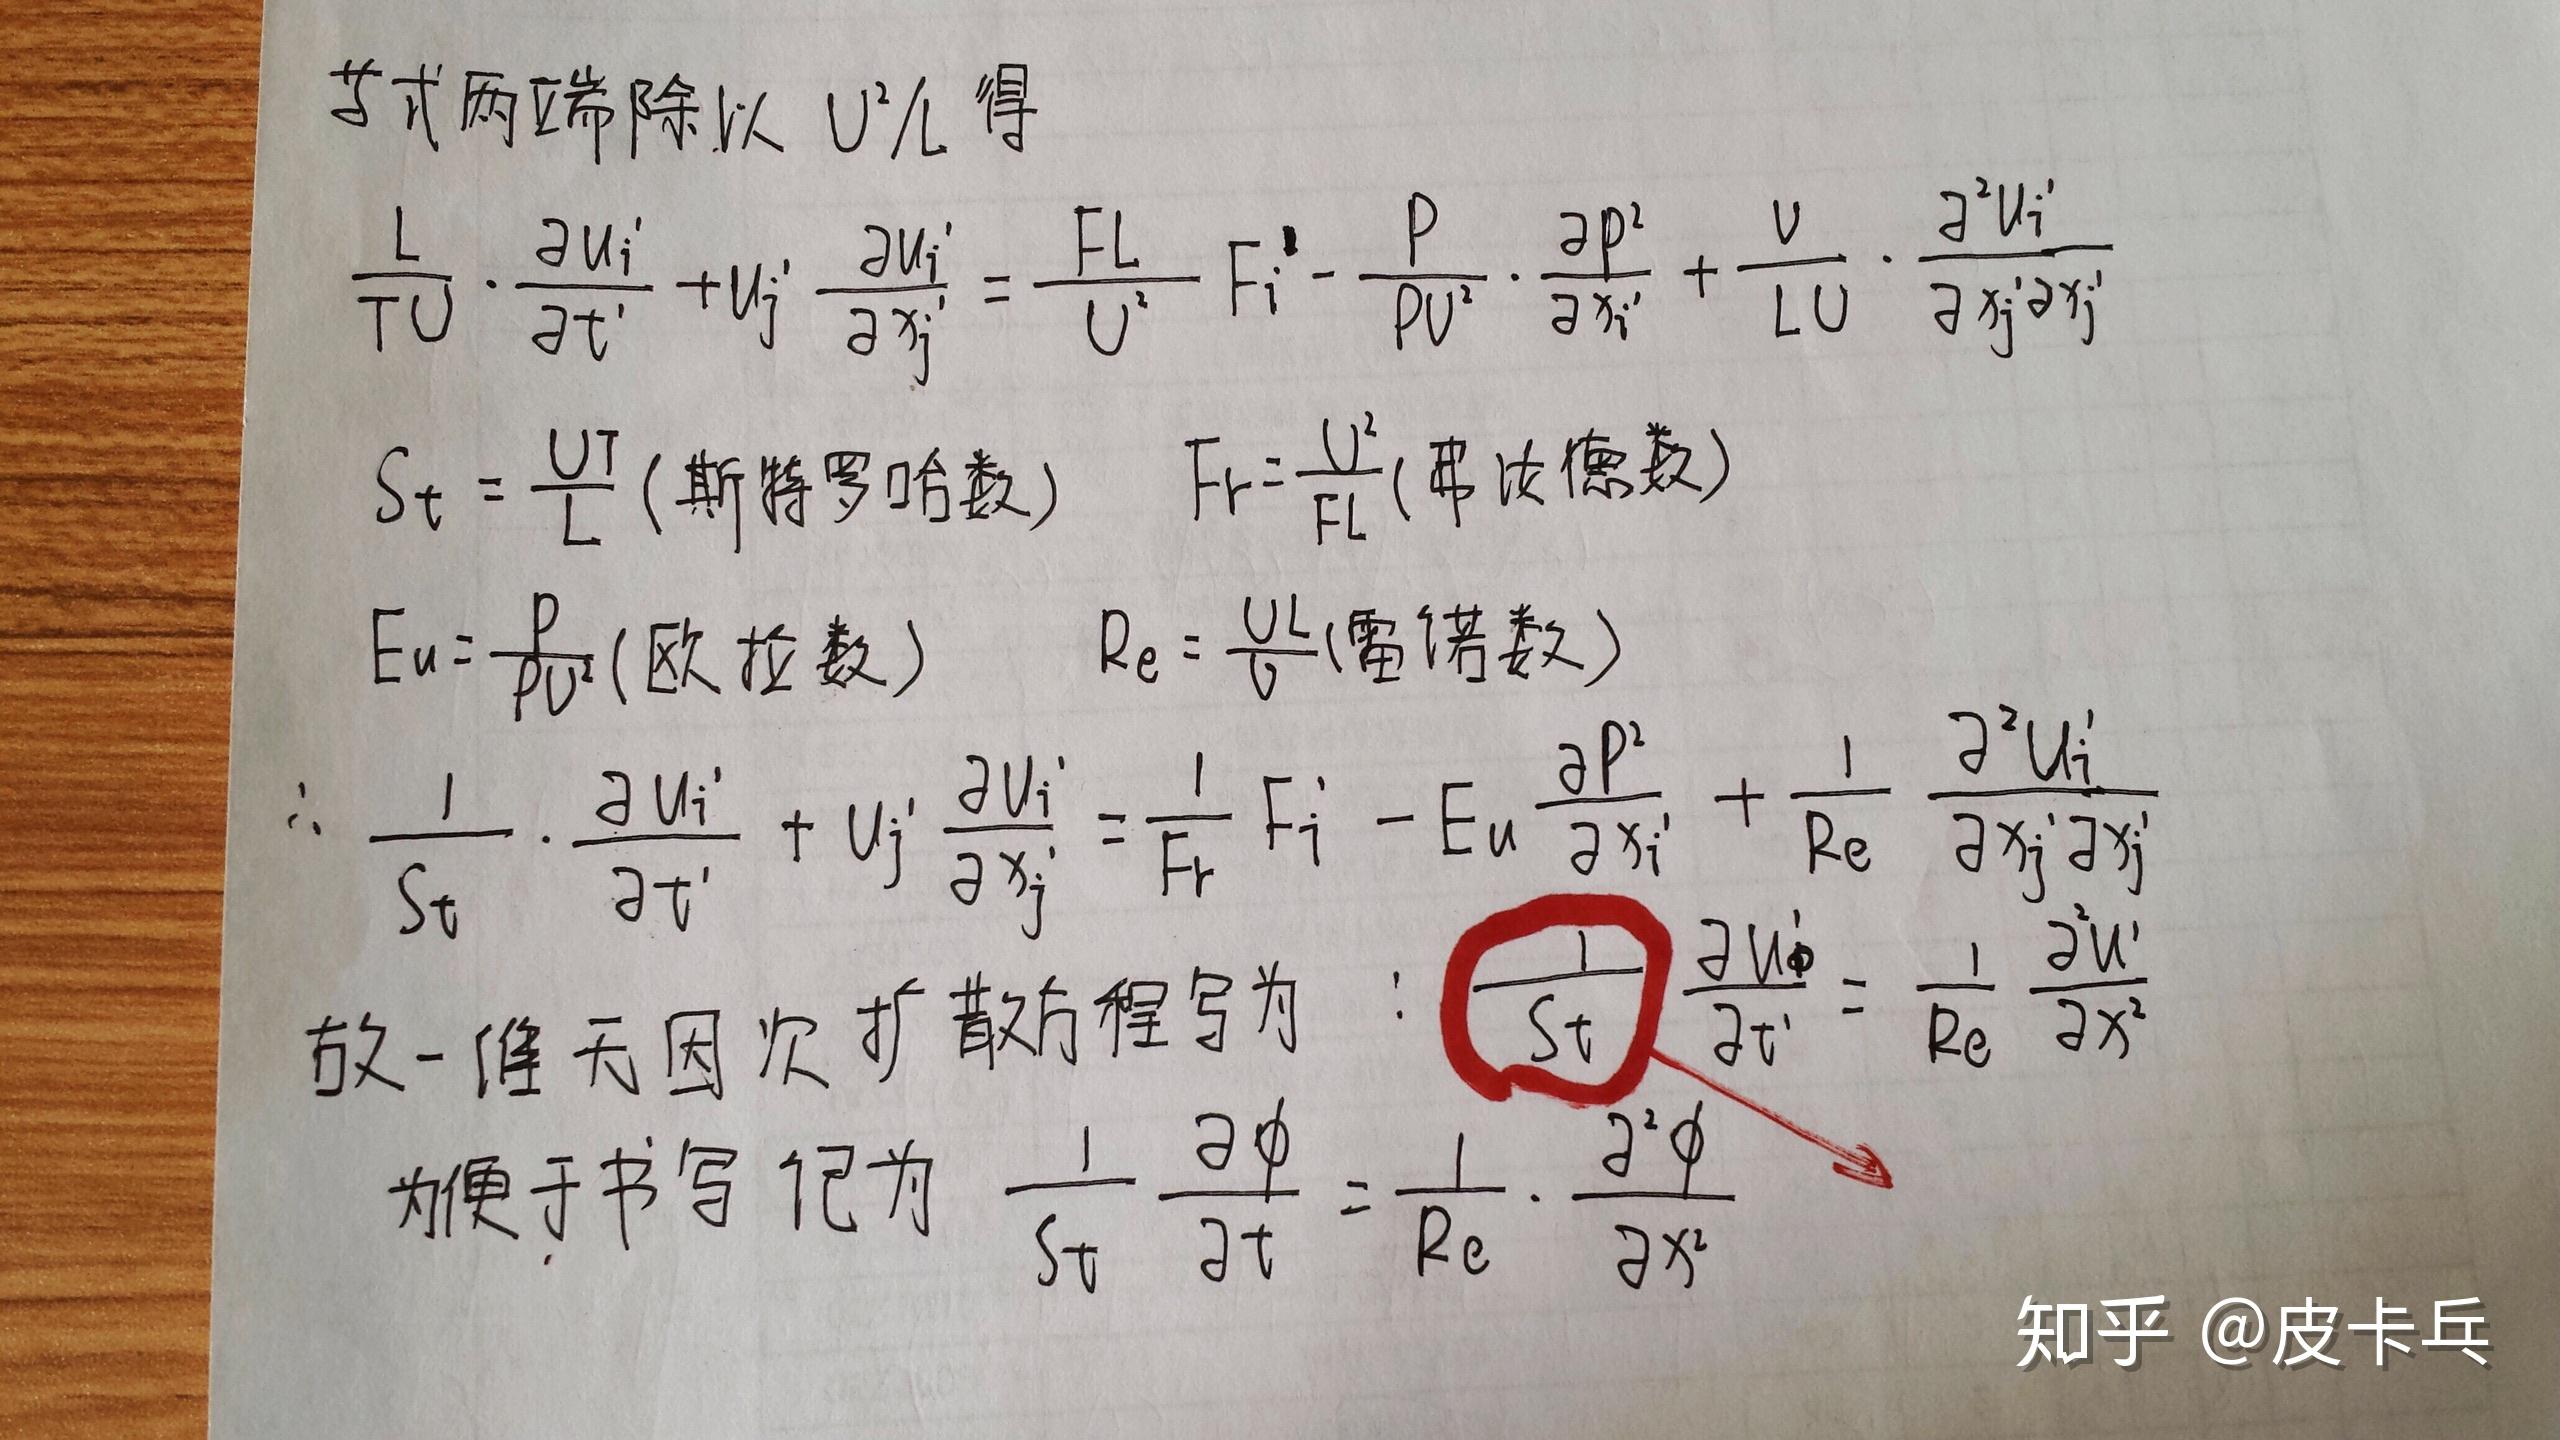 等式两端除以 U²/L 得
L/TU · ∂Ui'/∂t' + Uj' ∂Ui'/∂xj' = FL/U² Fi' - P/PU² · ∂P²/∂xi' + υ/LU · ∂²Ui'/∂xj'∂xj'
St = UT/L (斯特罗哈数) Fr = U²/FL (弗汝德数)
Eu = P/PU² (欧拉数) Re = UL/υ (雷诺数)
∴ 1/St · ∂Ui'/∂t' + Uj' ∂Ui'/∂xj' = 1/Fr Fi' - Eu ∂P²/∂xi' + 1/Re ∂²Ui'/∂xj'∂xj'
故一维无因次扩散方程写为: 1/St ∂U'/∂t' = 1/Re ∂²U'/∂x²
为便于书写记为 1/St ∂φ/∂t = 1/Re · ∂²φ/∂x²
知乎 @皮卡兵